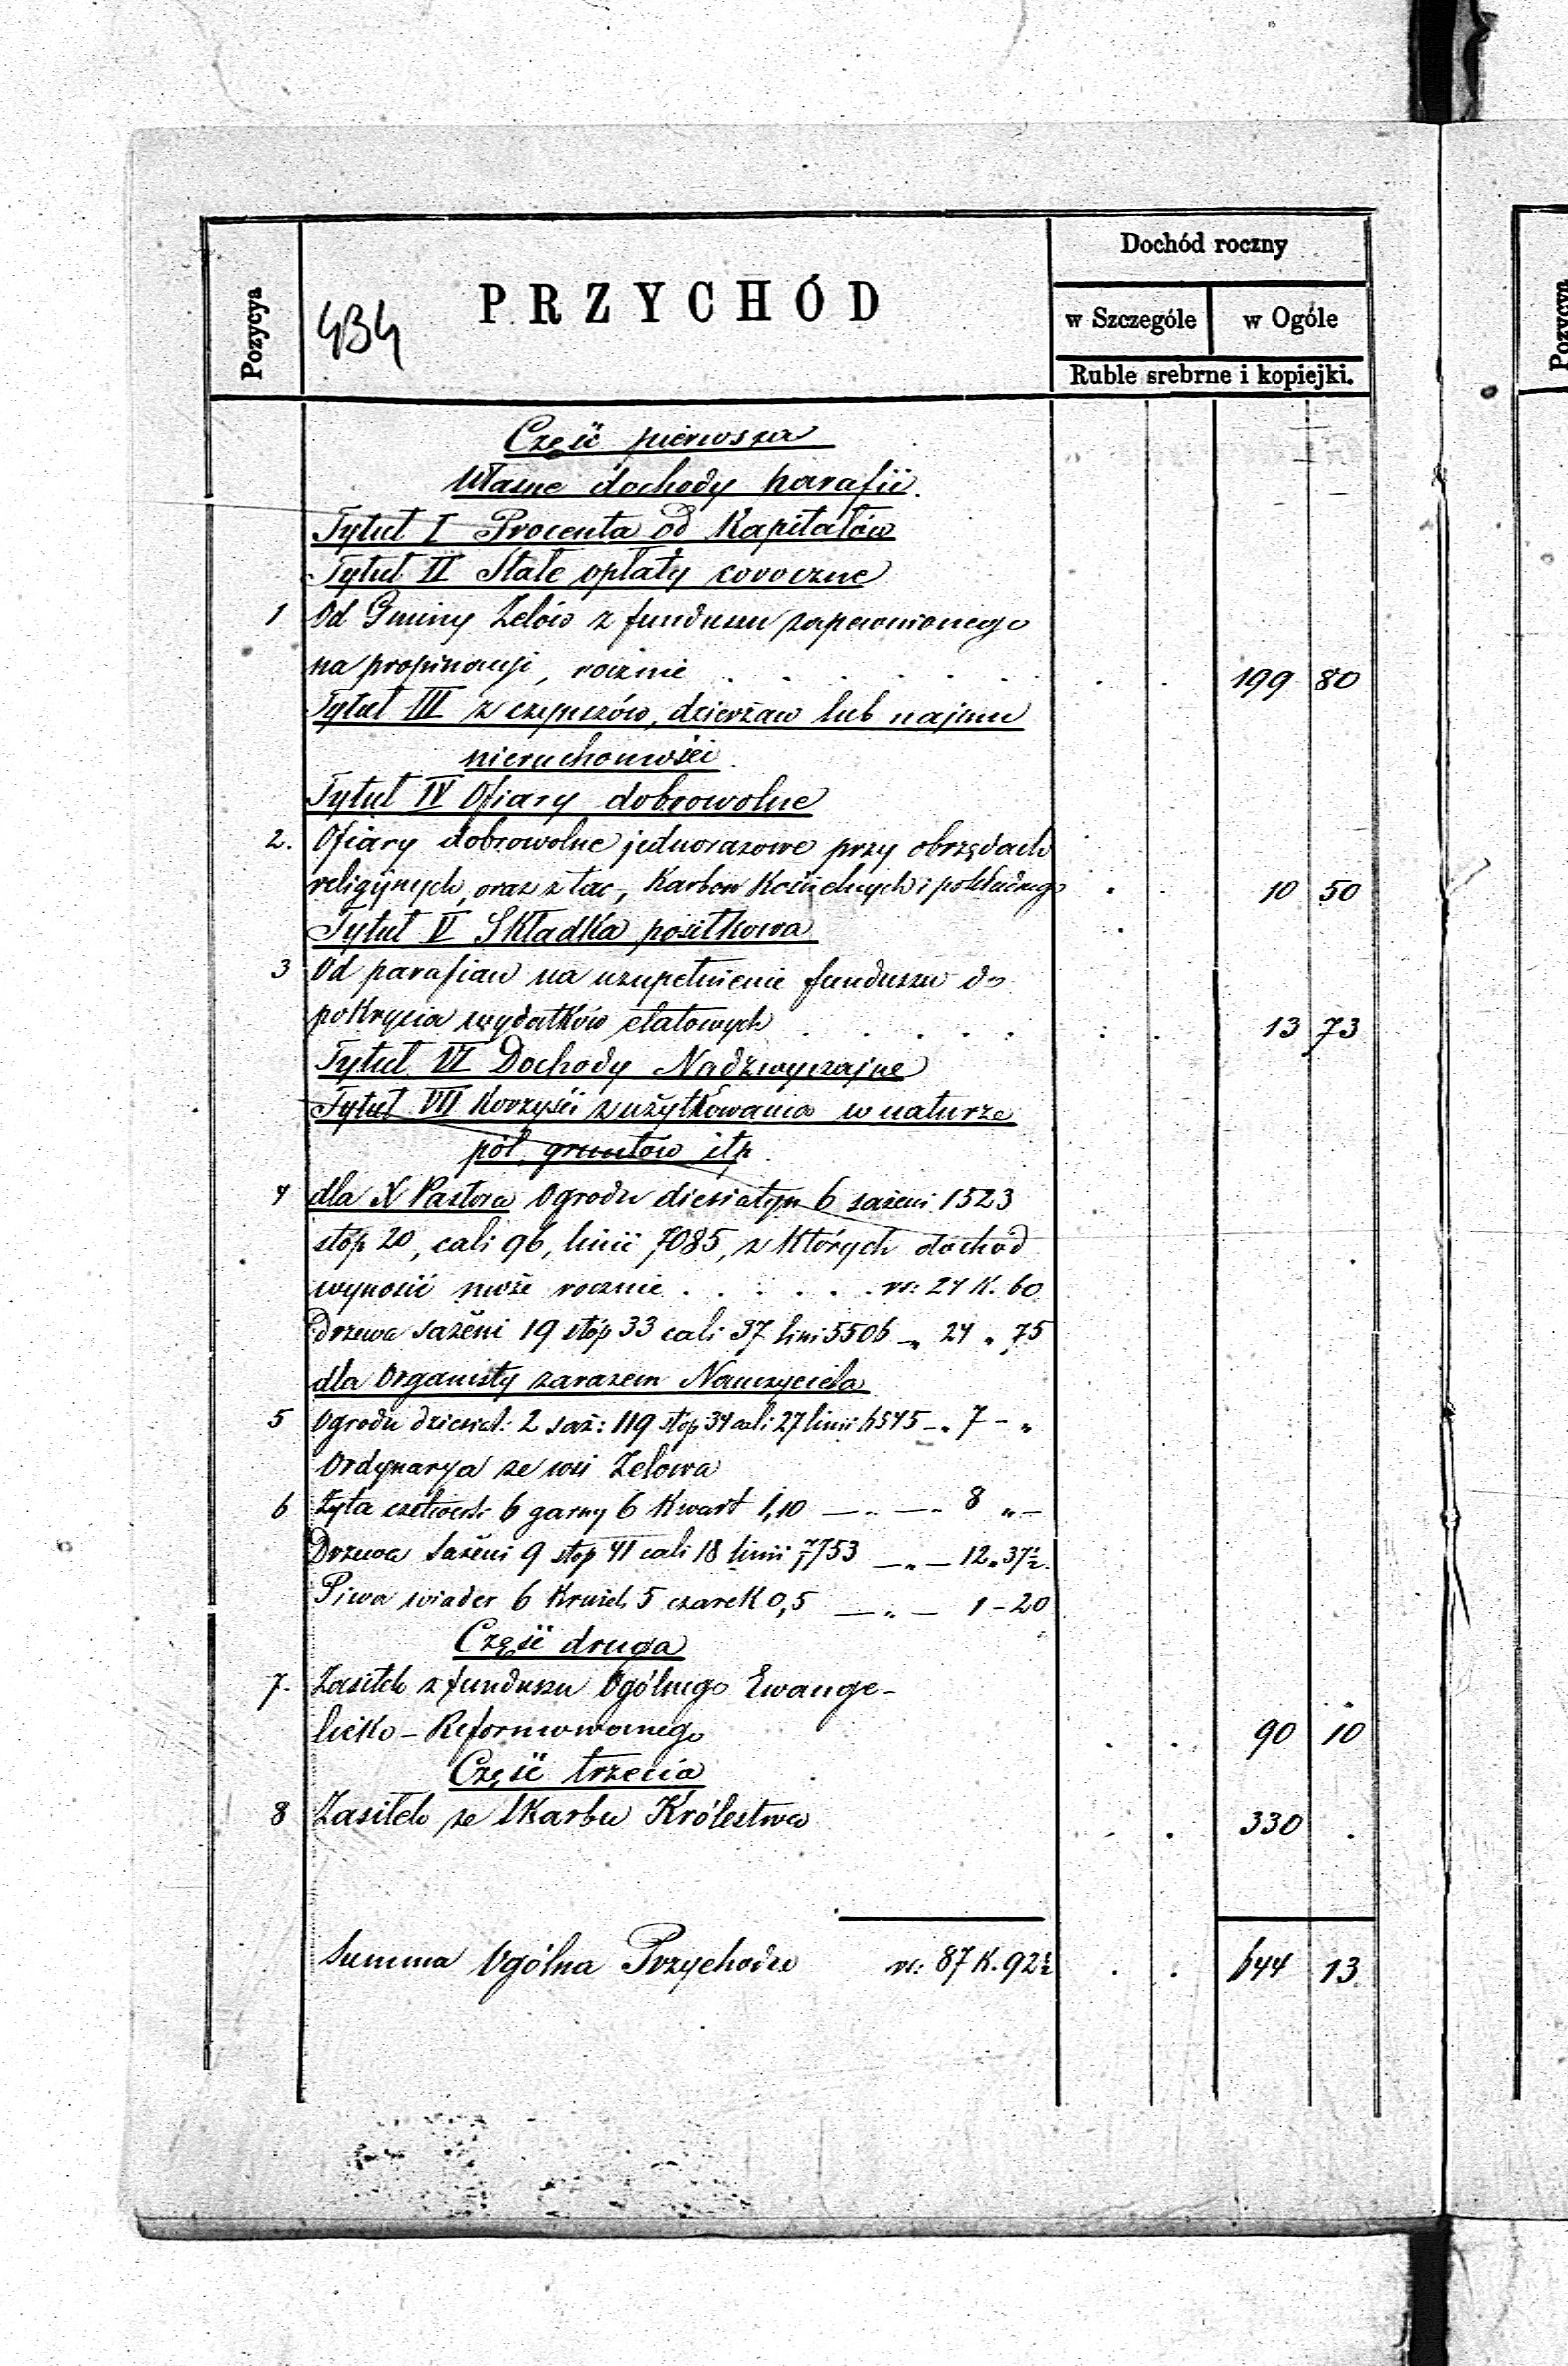 Dochód roczny
Pozycya
PRZYCHÓD
434
w Szczególe
w Ogóle
Ruble srebrne i kopiejki.
Część pierwsza
Własne dochody parafii.
Tytuł I Procenta od Kapitałów
Tytuł II Stałe opłaty coroczne
1 Od Gminy Zelów z funduszu zapewnionego
na propinacyi, rocznie . . . . . . . . 199 80
Tytuł III z czynszów, dzierżaw lub najmu
nieruchomości.
Tytuł IV Ofiary dobrowolne
2. Ofiary dobrowolne jednorazowe przy obrzędach
religijnych, oraz z tac, Karbon Kościelnych i pokładnego . 10 50
Tytuł V Składka posiłkowa
3 Od parafian na uzupełnienie funduszu do
pokrycia wydatków etatowych . . . . . . . 13 73
Tytuł VI Dochody Nadzwyczajne
Tytuł VII Korzyści z użytkowania w naturze
pól, gruntów itp.
4 dla X Pastora Ogrodu diesiatyn 6 sażeni 1523
stóp 20, cali 96, linii 7085, z których dochód
wynosić może rocznie . . . . . . rs: 24 K. 60
Drzewa sażeni 19 stóp 33 cali 37 lini 5506 -„ 24 „ 75
dla Organisty zarazem Nauczyciela
5 Ogrodu dziesiat: 2 saż: 119 stóp 34 cali 27 linii 6545 -„ 7 - „
Ordynarya ze wsi Zelowa
6 Żyta czetwert. 6 garny 6 Kwart 1,10 — „ — „ 8 „ -
Drzewa Sażeni 9 stóp 41 cali 18 linii 7753 — „ — 12 „ 37½.
Piwa wiader 6 Krużek 5 czarek 0,5 — „ — 1 - 20
Część druga
7. Zasiłek z funduszu Ogólnego Ewange-
licko - Reformowanego . . 90 10
Część trzecia
8 Zasiłek ze Skarbu Królestwa . . 330 .
Summa Ogólna Przychodu rs: 87 K. 92½ . . 644 13
Pozycya